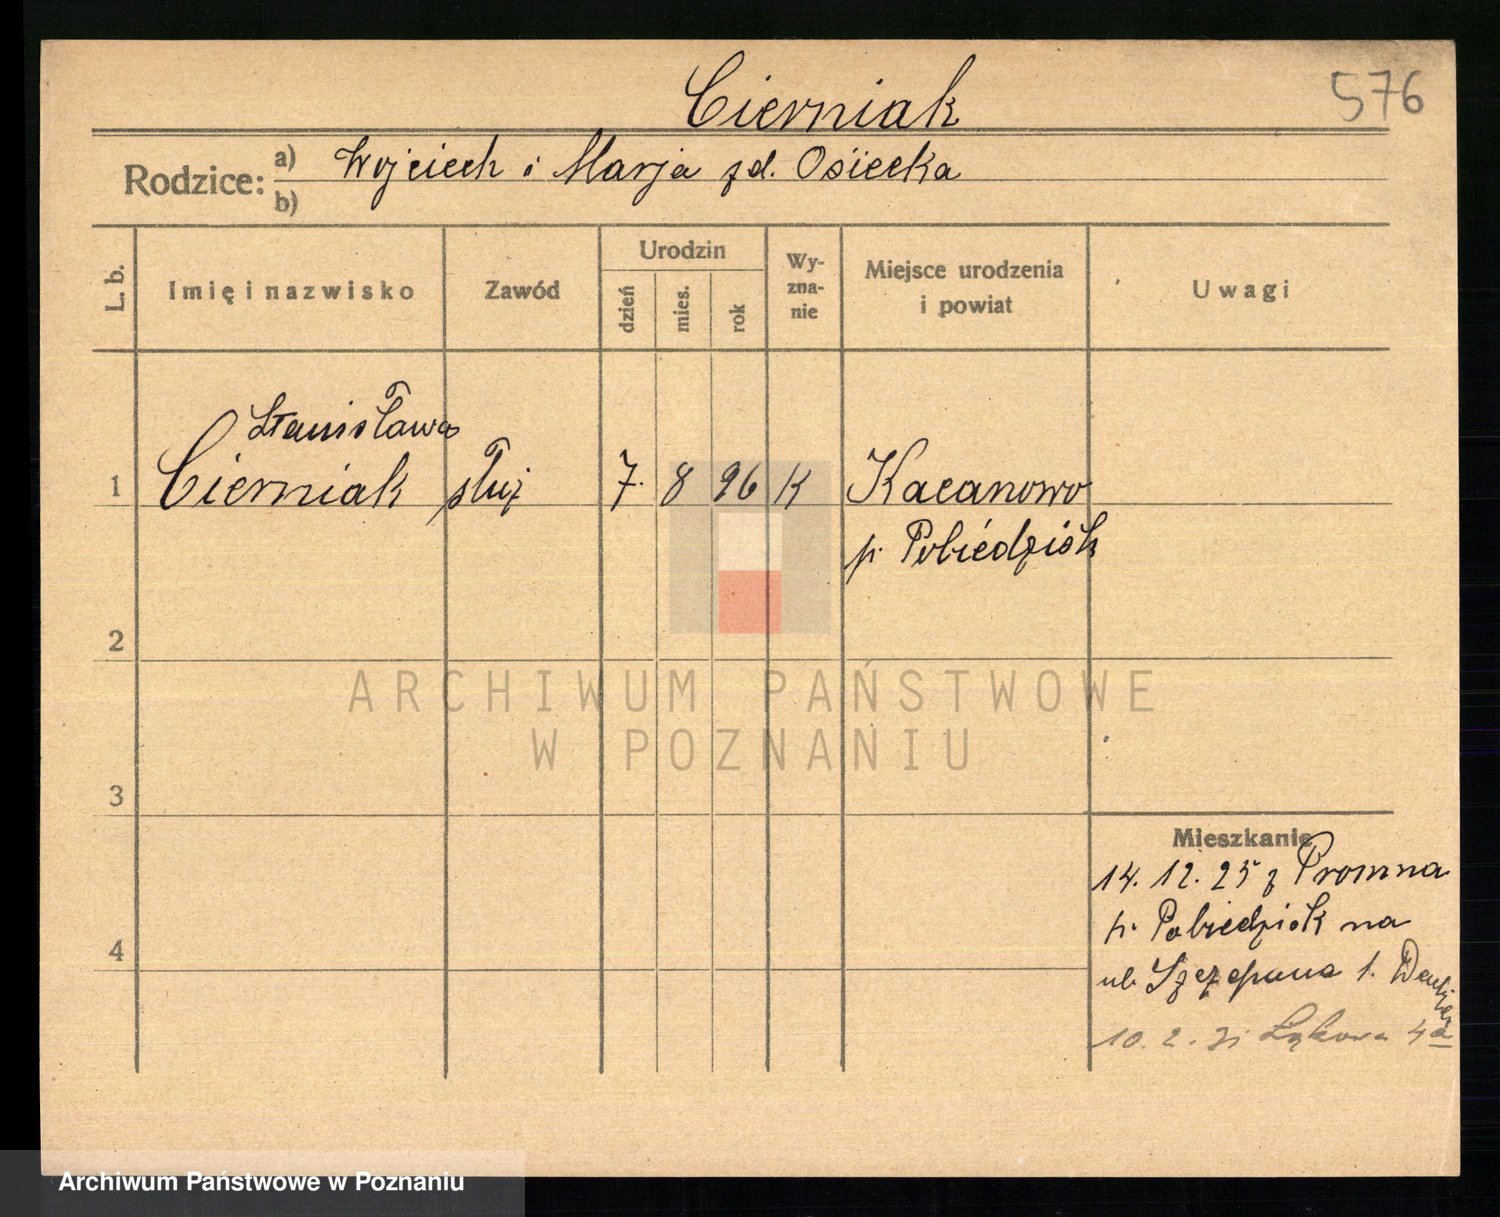 Cierniak
576
Rodzice: a) Wojciech i Marja zd. Osiecka
b)
L. b.
Imię i nazwisko
Zawód
Urodzin
dzień
mies.
rok
Wy-
zna-
nie
Miejsce urodzenia
i powiat
Uwagi
Stanisława
1 Cierniak służ 7. 8 96 K Kacanowo
p. Pobiedzisk
2
3
4
Mieszkanie
14. 12. 25 z Promna
p. Pobiedzisk na
ul. Szczepana 1.
10. 2. 31 Łąkowa 4a
ARCHIWUM PAŃSTWOWE
W POZNANIU
Archiwum Państwowe w Poznaniu